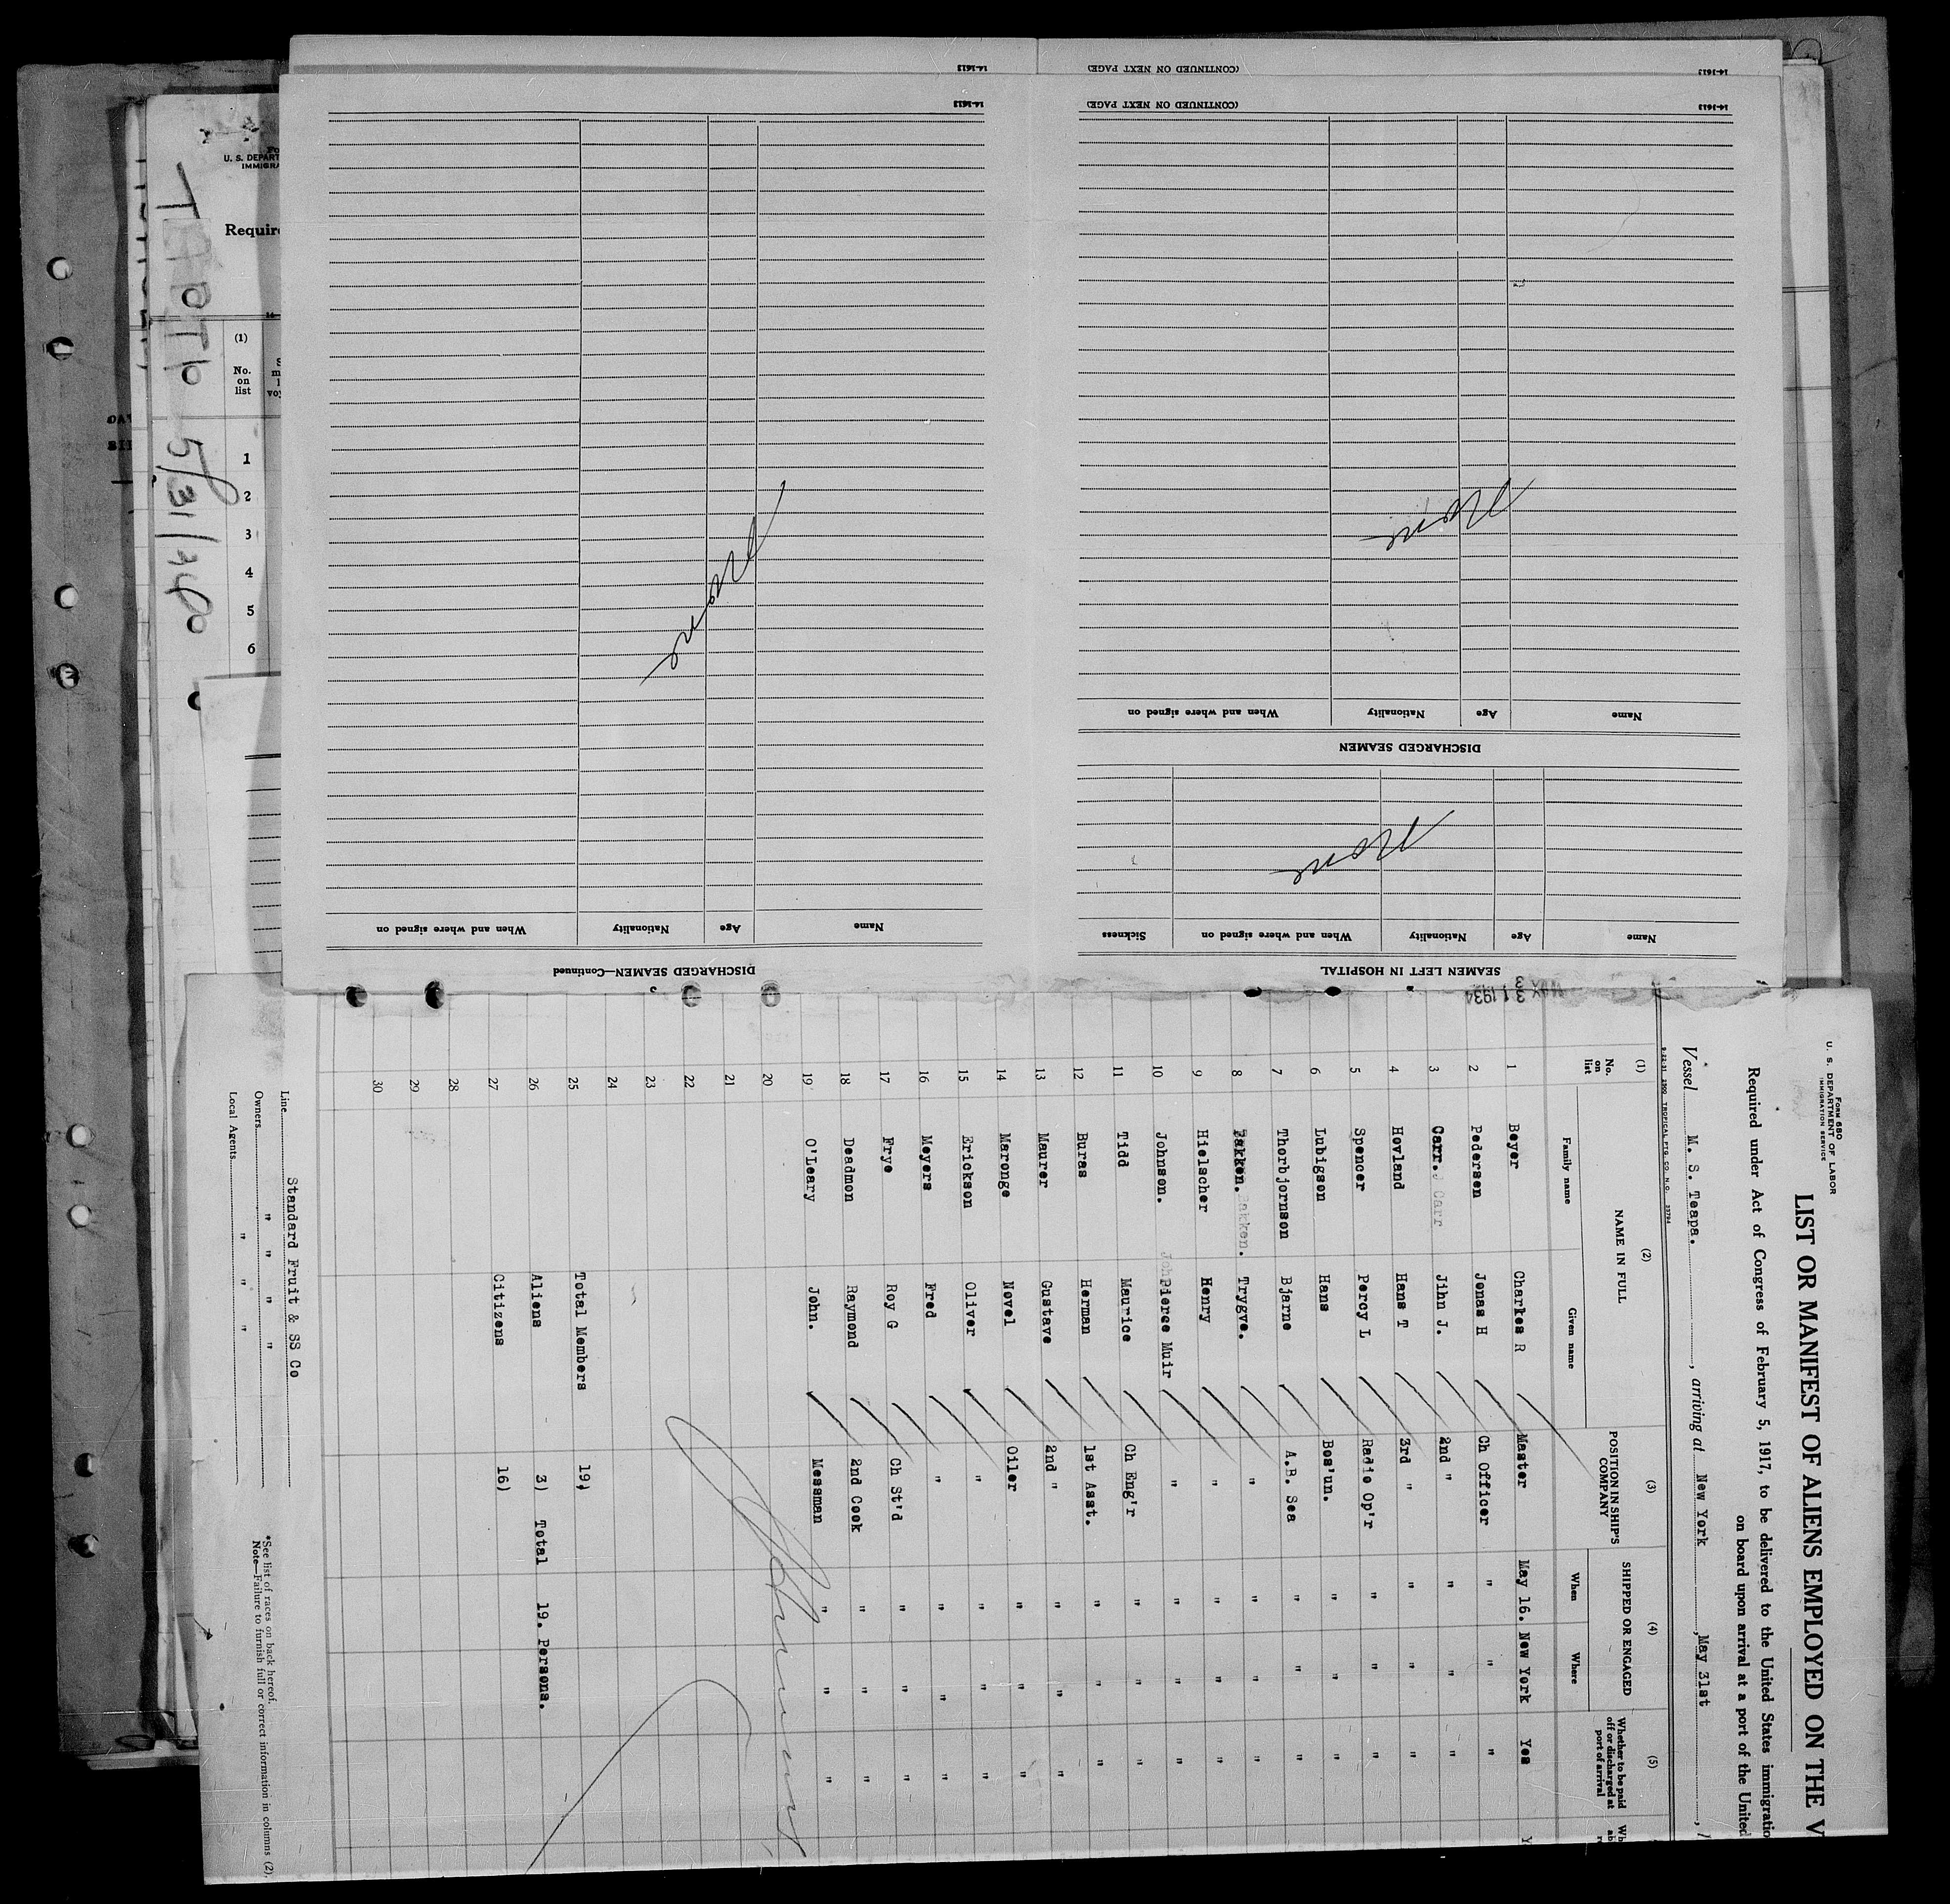 14-1613
(CONTINUED ON NEXT PAGE)
14-1613
14-1613
(CONTINUED ON NEXT PAGE)
14-1613
U. S. DEPART
IMMIGRA
Require
(1)
No.
on
list
1
2
3
4
5
6
5/31/
SEAMEN LEFT IN HOSPITAL
Name Age Nationality When and where signed on Sickness
None
DISCHARGED SEAMEN
Name Age Nationality When and where signed on
None
DISCHARGED SEAMEN—Continued
Name Age Nationality When and where signed on
None
MAY 31 1934
Form 680
U. S. DEPARTMENT OF LABOR
IMMIGRATION SERVICE
LIST OR MANIFEST OF ALIENS EMPLOYED ON THE V
Required under Act of Congress of February 5, 1917, to be delivered to the United States immigratio
on board upon arrival at a port of the United
Vessel M. S. Teapa. , arriving at New York , May 31st , 1
9-22-31 2500 TROPICAL PTG. CO. N.O. 23794
(1) (2) (3) (4) (5)
No. on list NAME IN FULL POSITION IN SHIP'S COMPANY SHIPPED OR ENGAGED Whether to be paid off or discharged at port of arrival
Family name Given name When Where
1 Beyer Charles R Master May 16. New York Yes Y
2 Pedersen Jonas H Ch Officer " " "
3 Carr. J Carr Jihn J. 2nd " " " "
4 Hovland Hans T 3rd " " " "
5 Spencer Percy L Radio Op'r " " "
6 Lubigson Hans Bos'un. " " "
7 Thorbjornson Bjarne A.B. Sea " " "
8 Bakken. Bakken. Trygve. " " " "
9 Hielscher Henry " " " "
10 Johnson. Pierce Muir " " " "
11 Tidd Maurice Ch Eng'r " " "
12 Buras Herman 1st Asst. " " "
13 Maurer Gustave 2nd " " " "
14 Maronge Novel Oiler " " "
15 Erickson Oliver " " " "
16 Meyers Fred " " " "
17 Frye Roy G Ch St'd " " "
18 Deadmon Raymond 2nd Cook " " "
19 O'Leary John. Messman " " "
20
21
22
23
24
25 Total Members 19)
26 Aliens 3) Total 19. Persons.
27 Citizens 16)
28
29
30
Line Standard Fruit & SS Co
Owners " " " "
Local Agents " " "
*See list of races on back hereof.
Note—Failure to furnish full or correct information in columns (2),